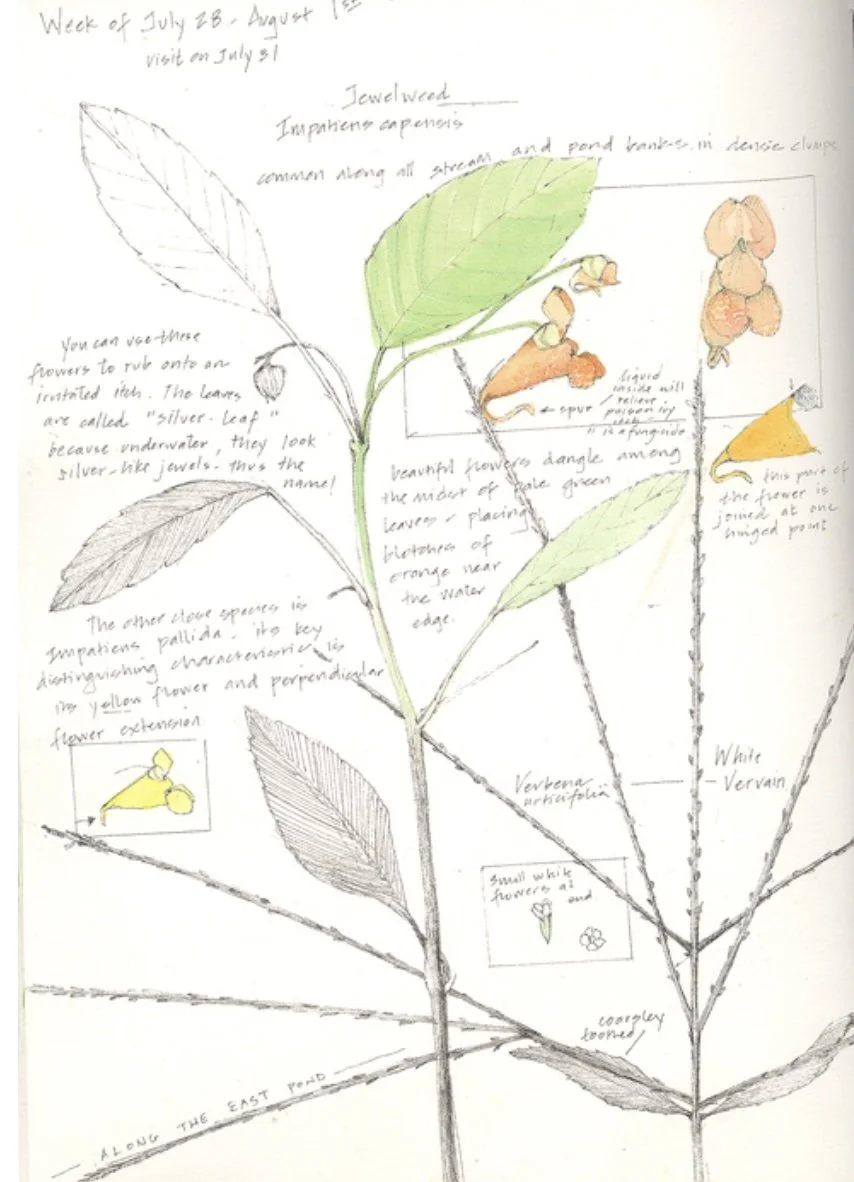 Week of July 28 - August 1st
visit on July 31
Jewelweed
Impatiens capensis
common along all stream and pond banks in dense clumps
You can use these
flowers to rub onto an
irritated itch. The leaves
are called "silver-leaf"
because underwater, they look
silver-like jewels - thus the
name!
← spur
liquid
inside will
relieve
poison ivy
itch
is a fungicide
this part of
the flower is
joined at one
hinged point
beautiful flowers dangle among
the midst of pale green
leaves - placing
blotches of
orange near
the water
edge.
The other close species is
Impatiens pallida. its key
distinguishing characteristic is
its yellow flower and perpendicular
flower extension
Verbena
urticifolia
White
Vervain
Small white
flowers at
end
coarsley
toothed
ALONG THE EAST POND